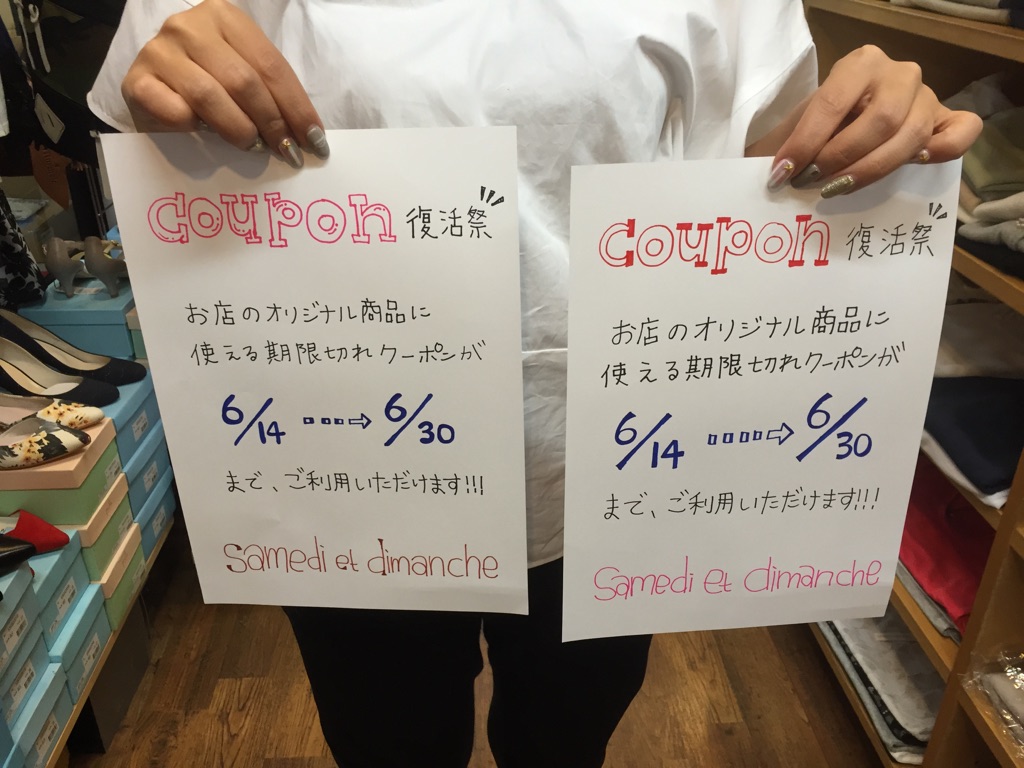 coupon 復活祭
お店のオリジナル商品に
使える期限切れクーポンが
6/14 ····→ 6/30
まで、ご利用いただけます!!!
samedi et dimanche
coupon 復活祭
お店のオリジナル商品に
使える期限切れクーポンが
6/14 ·····⇨ 6/30
まで、ご利用いただけます!!!
samedi et dimanche